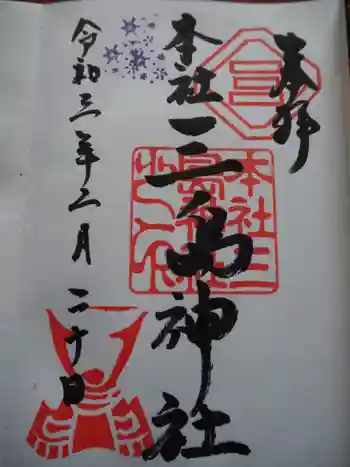 奉拝
本社三島神社
令和三年二月二十日
三
本社三
島神社